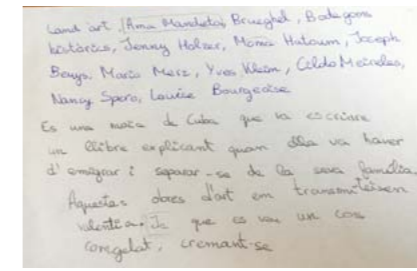 Land art, (Ana Mandieta) Brueghel, Bodegons
històrics, Jenny Holzer, Mona Hatoum, Joseph
Beuys, Mario Merz, Yves Klein, Cildo Meireles,
Nancy Spero, Louise Bourgeoise
Es una noia de Cuba que va escriure
un llibre explicant quan ella va haver
d'emigrar i separar-se de la seva família.
Aquestes obres d'art em transmiteixen
valentia. Ja que es veu un cos
congelat, cremant-se